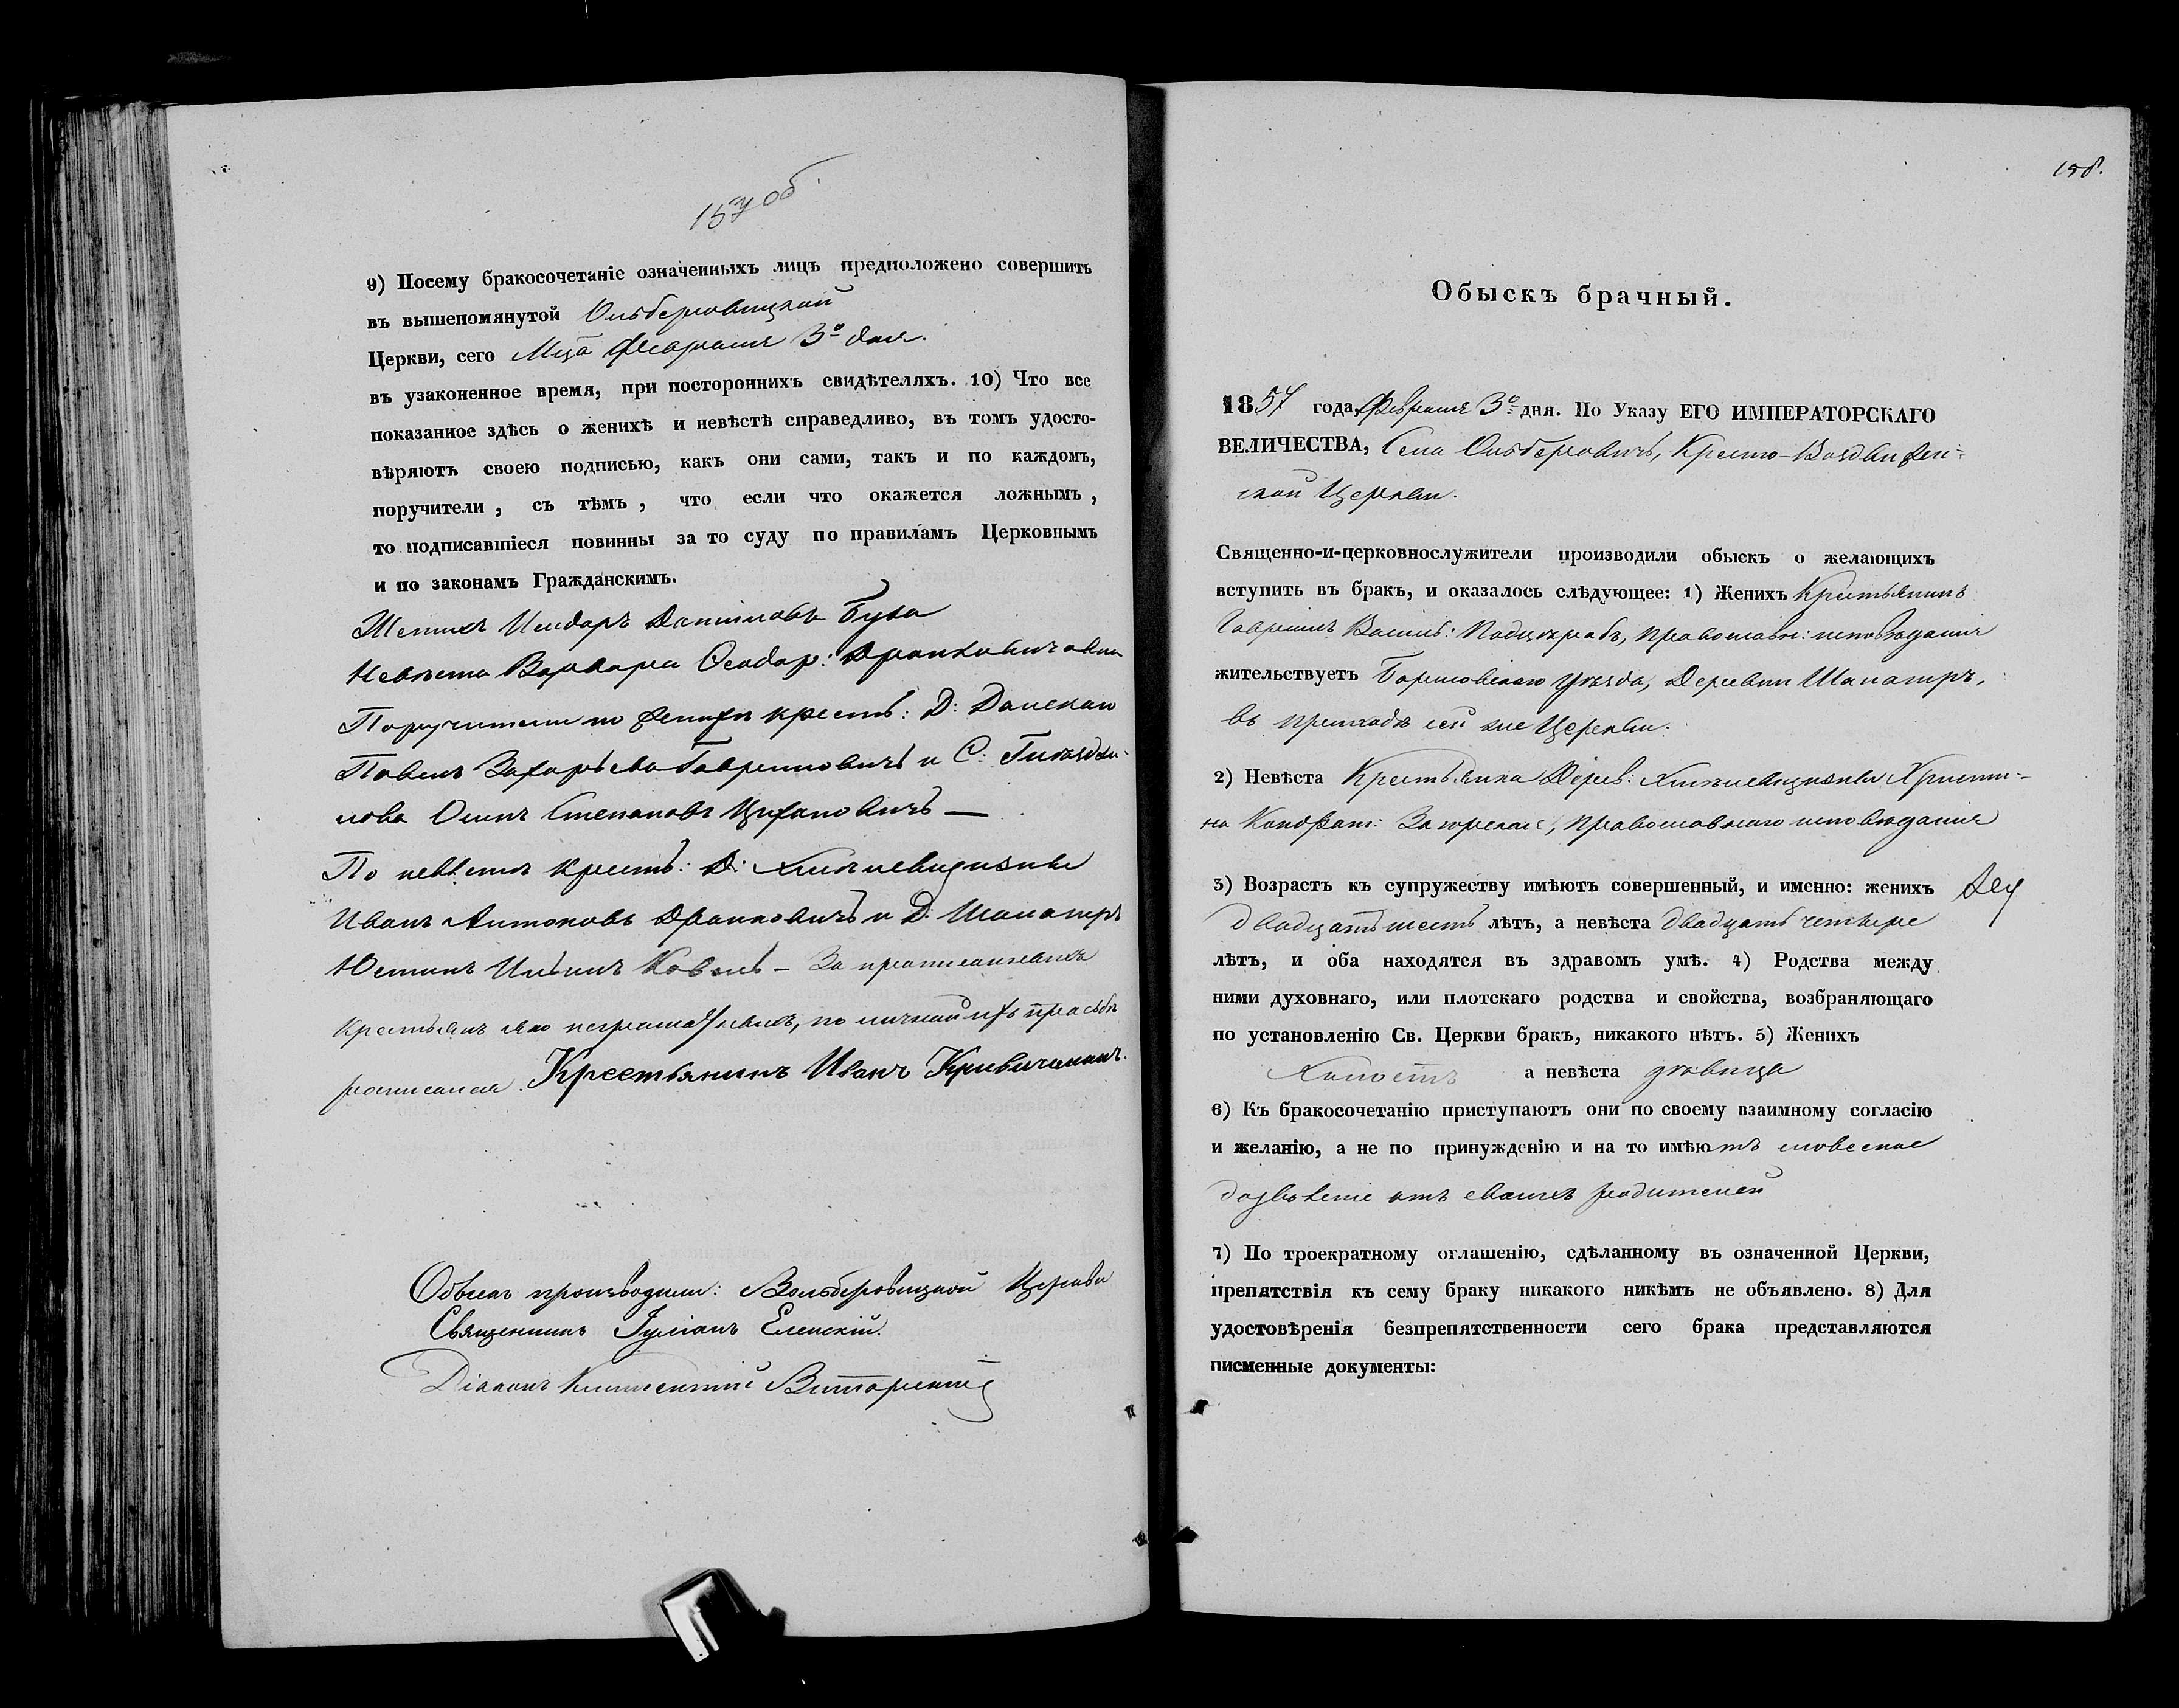 157 об
9) Посему бракосочетаніе означенныхъ лицъ предположено совершить
въ вышепомянутой Ольберовицкой
Церкви, сего Мца Февраля 3º дня.
въ узаконенное время, при постороннихъ свидѣтеляхъ. 10) Что все
показанное здѣсь о женихѣ и невѣстѣ справедливо, въ томъ удосто-
вѣряютъ своею подписью, какъ они сами, такъ и по каждомъ,
поручители, съ тѣмъ, что если что окажется ложнымъ,
то подписавшіеся повинны за то суду по правиламъ Церковнымъ
и по законамъ Гражданскимъ.
Женихъ Исидоръ Даниловъ Буза
Невѣста Варвара Ѳеодор: Дранковичовна
Поручители по женихѣ крест: Д:
Павелъ Захарьевъ Гавриловичъ и С:
лова Осипъ Степановъ Цихановичъ —
По невѣстѣ крест: Д:
Иванъ Антоновъ Дранковичъ и Д: Шапатиръ
Юстинъ Ильинъ Коваль — За прописанныхъ
Крестьянъ яко неграмотныхъ, по личной ихъ просьбѣ
росписался Крестьянинъ Иванъ
Обыскъ производили: Вольберовицкой Церкви
Священникъ Іуліанъ Еленскій.
Діаконъ
158.
Обыскъ брачный.
1857 года, Февраля 3º дня. По Указу ЕГО ИМПЕРАТОРСКАГО
ВЕЛИЧЕСТВА, Села Ольберовичъ, Кресто-Воздвижен-
ской Церкви.
Священно-и-церковнослужители производили обыскъ о желающихъ
вступить въ бракъ, и оказалось слѣдующее: 1) Женихъ Крестьянинъ
Гавріилъ Васил: православн: исповѣданія
жительствуетъ Борисовскаго Уѣзда, Деревни Шапатиръ,
въ приходѣ сей же Церкви.
2) Невѣста Крестьянка Дерев: Христи-
на Кондрат: православнаго исповѣданія
3) Возрастъ къ супружеству имѣютъ совершенный, и именно: женихъ
двадцать шесть лѣтъ, а невѣста двадцать четыре
лѣтъ, и оба находятся въ здравомъ умѣ. 4) Родства между
ними духовнаго, или плотскаго родства и свойства, возбраняющаго
по установленію Св. Церкви бракъ, никакого нѣтъ. 5) Женихъ
Холостъ а невѣста дѣвица
6) Къ бракосочетанію приступаютъ они по своему взаимному согласію
и желанію, а не по принужденію и на то имѣютъ словесное
дозволеніе отъ своихъ родителей
7) По троекратному оглашенію, сдѣланному въ означенной Церкви,
препятствія къ сему браку никакого никѣмъ не объявлено. 8) Для
удостовѣренія безпрепятственности сего брака представляются
писменные документы: